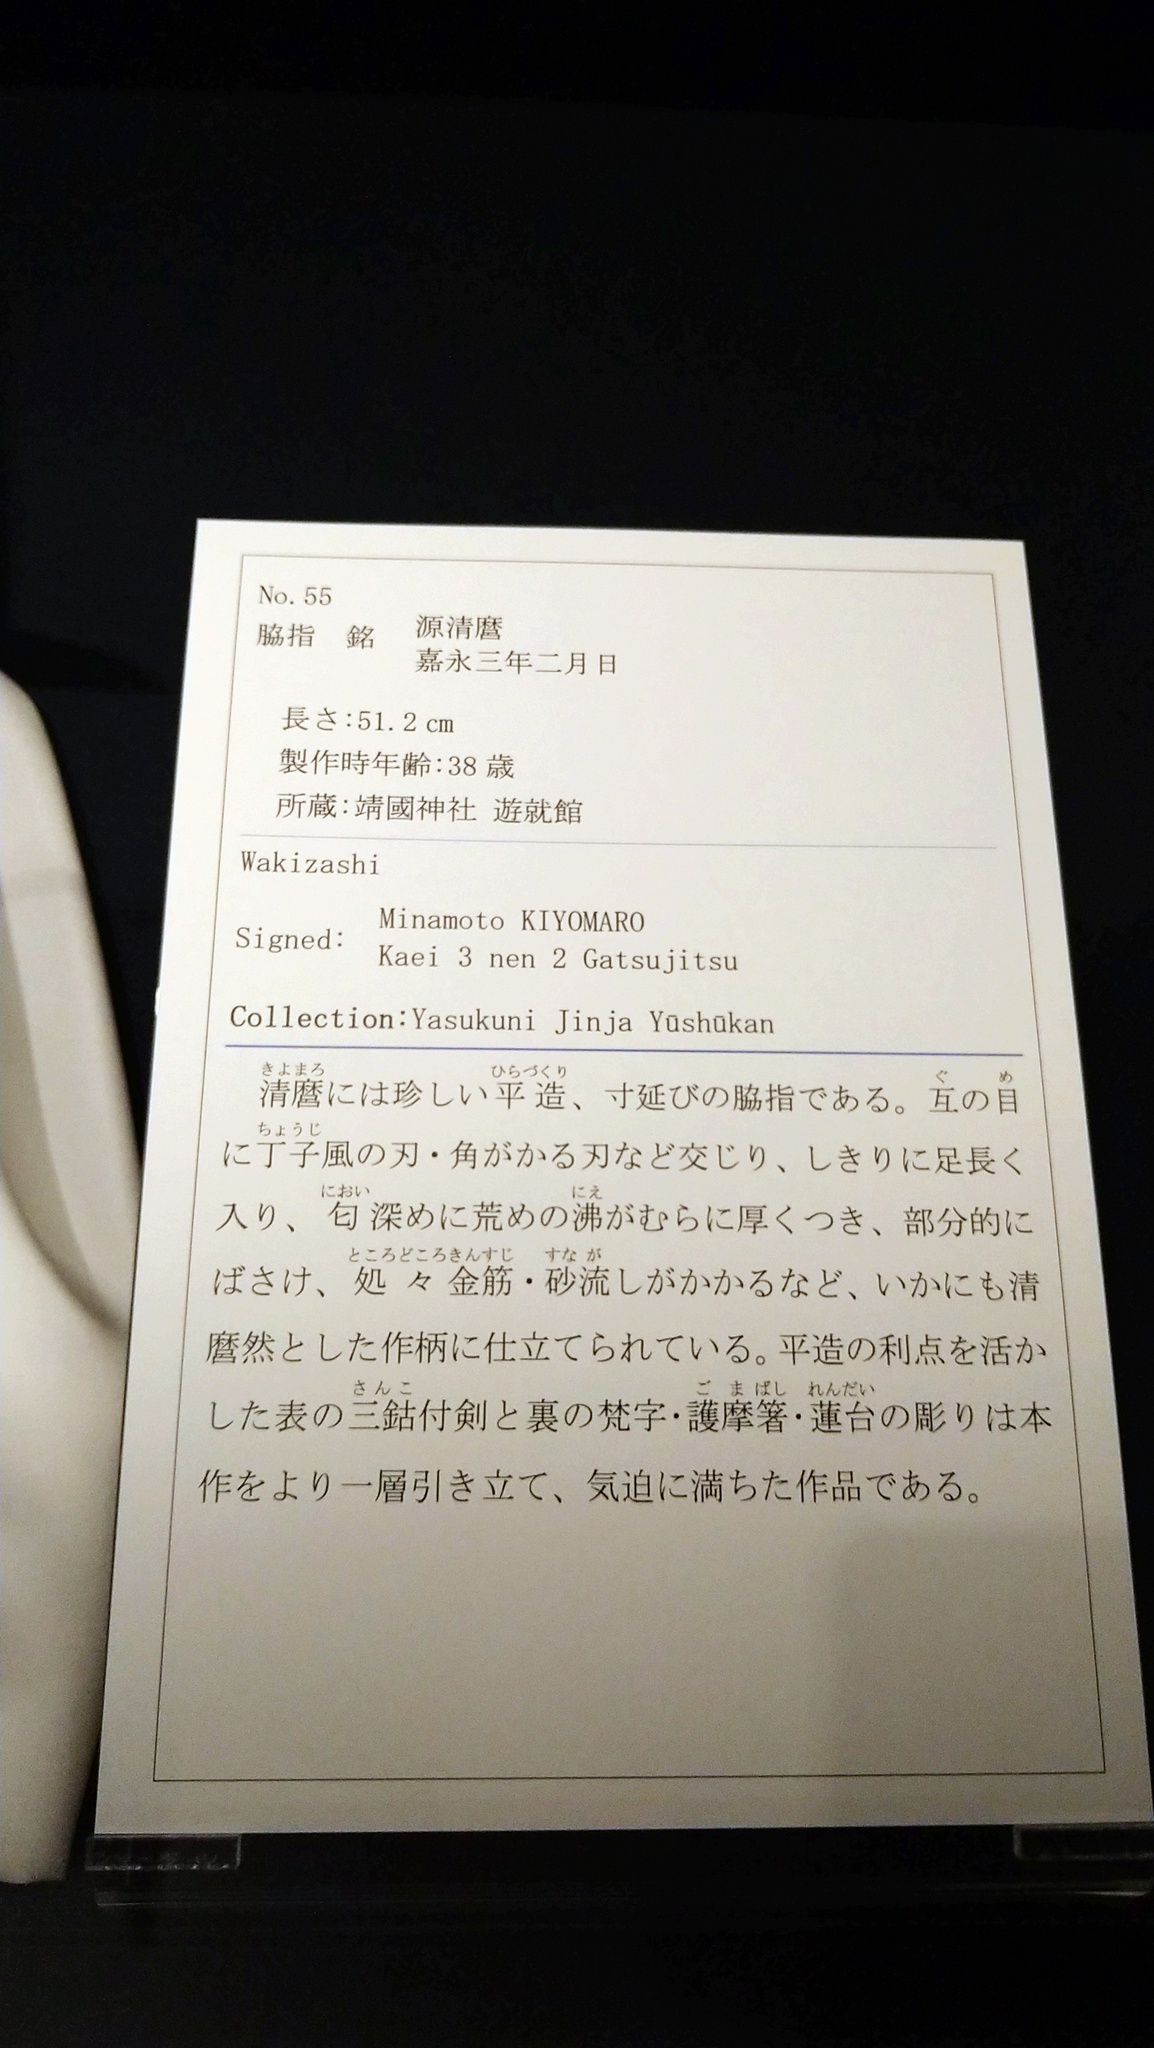 No. 55
脇指　銘　源清麿
嘉永三年二月日
長さ:51.2 cm
製作時年齢:38 歳
所蔵:靖國神社 遊就館
Wakizashi
Signed: Minamoto KIYOMARO
Kaei 3 nen 2 Gatsujitsu
Collection:Yasukuni Jinja Yūshūkan
きよまろ ひらづくり ぐ め
清麿には珍しい平造、寸延びの脇指である。互の目
ちょうじ
に丁子風の刃・角がかる刃など交じり、しきりに足長く
におい にえ
入り、匂深めに荒めの沸がむらに厚くつき、部分的に
ところどころきんすじ すなが
ばさけ、処々金筋・砂流しがかかるなど、いかにも清
麿然とした作柄に仕立てられている。平造の利点を活か
さんこ ごまばし れんだい
した表の三鈷付剣と裏の梵字・護摩箸・蓮台の彫りは本
作をより一層引き立て、気迫に満ちた作品である。